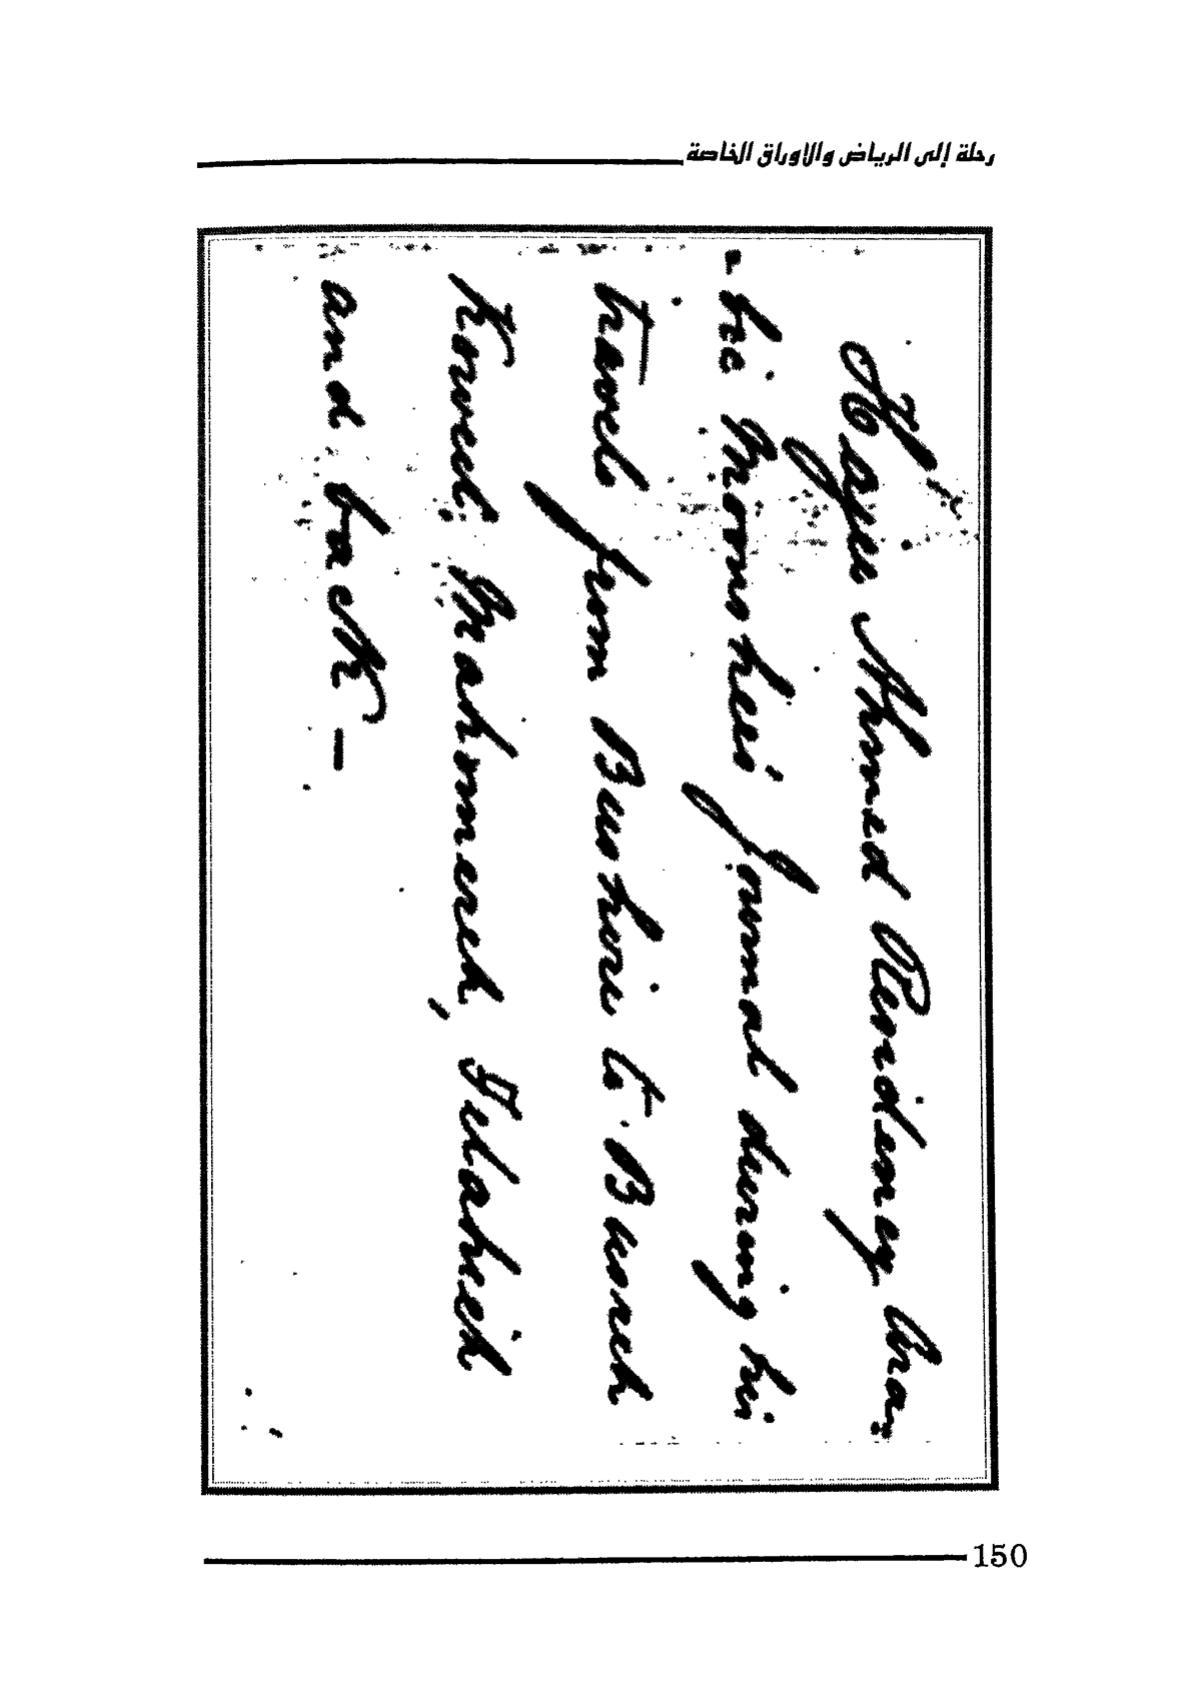 رحلة إلى الرياض والاوراق الخاصة
Hajee Ahmed Residency Ara=
=bic Moonshee's Journal during his
travels from Bushire to Busreh
Koweit. Mahomereh, Felahieh
and back –
150